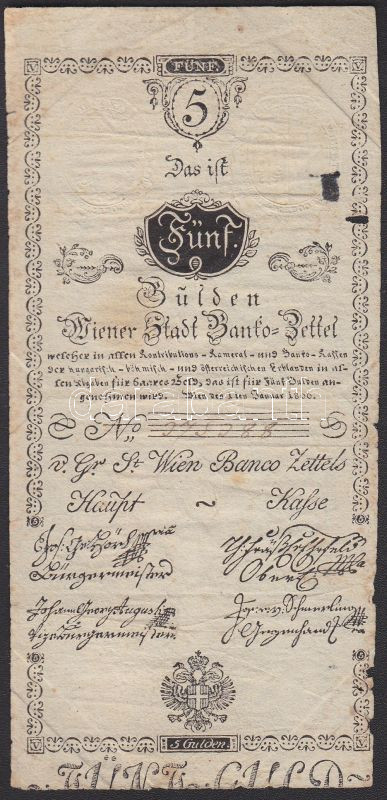 V FÜNF. V
5
Das ist
Fünf.
6
Gulden
Wiener Stadt Banko=Zettel
welcher in allen Kontributions-Kameral-und Banko-Kassen
der hungarisch-böhmisch-und österreichischen Erblanden in al-
len Gelden für baares Geld, das ist für Fünf Gulden an-
genohmen wird. Wien den 1ten Januar 1800.
No 973988
v. Gr St Wien Banco Zettels
Haupt ~ Kasse
Bürgermeister
Johann Georg Augusti
Vizebürgermeister
V 5 Gulden. V
FÜNF GULD